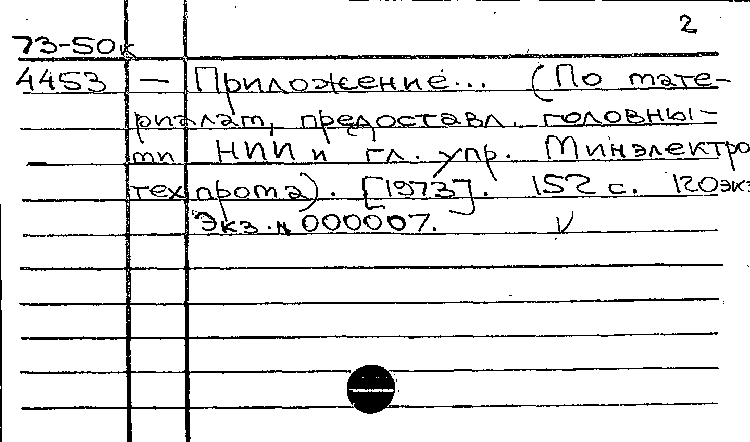 2
73-50к
4453 — Приложение... (По мате-
риалам, предоставл. головны-
ми НИИ и гл. упр. Минэлектро
техпрома). [1973]. 152 с. 120экз
Экз. № 000007. V